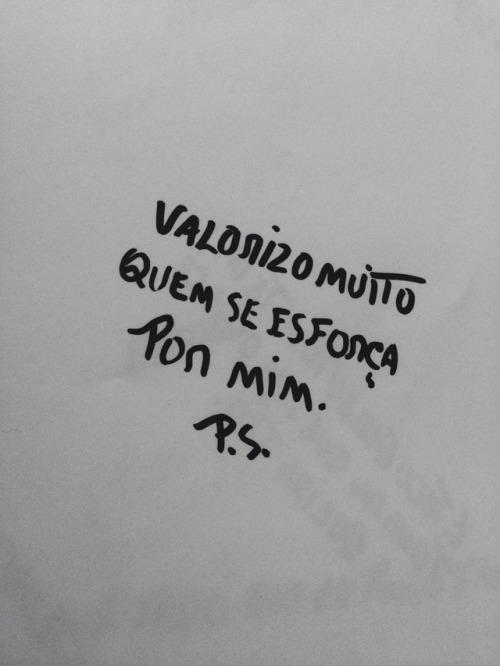 VALORIZO MUITO
QUEM SE ESFORÇA
POR MIM.
P.S.